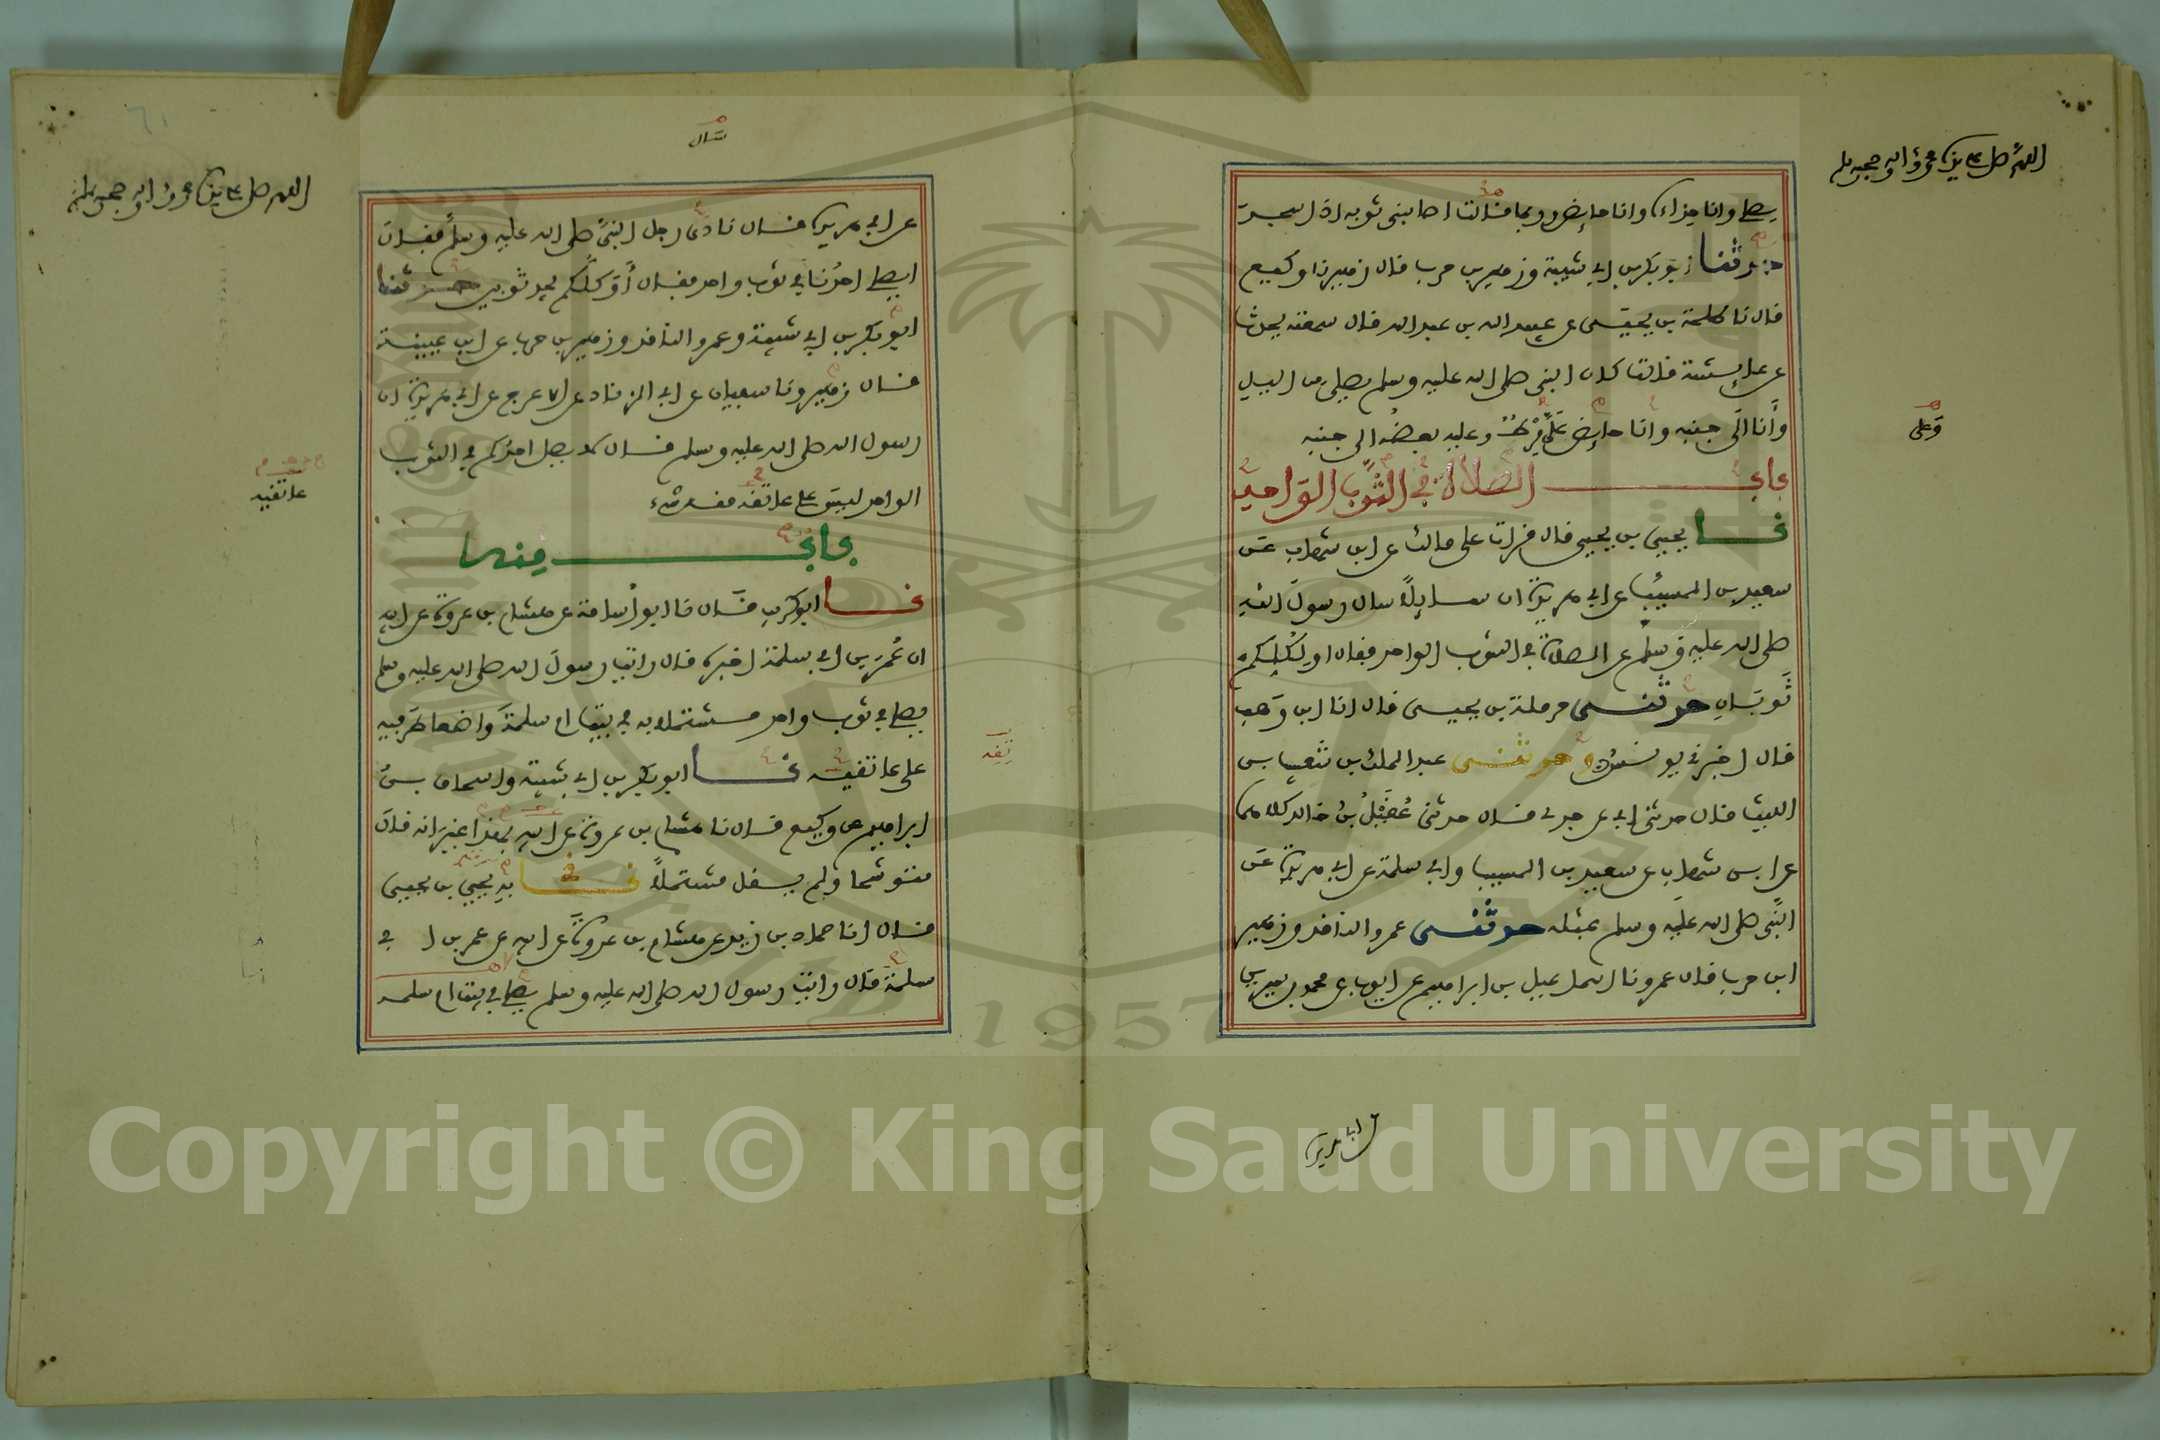 اللهم صل على سيدنا محمد وآله وصحبه وسلم
يصلي وانا حذاءه وانا حايض وربما قالت اصابني ثوبه اذا سجد
حدثنا ابو بكر بن ابي شيبة وزهير بن حرب قال زهير نا وكيع
قال نا طلحة بن يحيى عن عبيد الله بن عبد الله قال سمعته يحدث
عن عايشة قالت كان النبي صلى الله عليه وسلم يصلي من الليل
وأنا الى جنبه وانا حايض علي مرط وعليه بعضه الى جنبه
وعلي
باب الصلاة في الثوب الواحد
نا يحيى بن يحيى قال قرات على مالك عن ابن شهاب عن
سعيد بن المسيب عن ابي هريرة ان سايلا سال رسول الله
صلى الله عليه وسلم عن الصلاة في الثوب الواحد فقال اولكلكم
ثوبان حدثني حرملة بن يحيى قال انا ابن وهب
قال اخبرني يونس وحدثني عبد الملك بن شعيب بن
الليث قال حدثني ابي عن جدي قال حدثني عقيل بن خالد كلاهما
عن ابن شهاب عن سعيد بن المسيب وابي سلمة عن ابي هريرة عن
النبي صلى الله عليه وسلم بمثله حدثني عمرو الناقد وزهير
ابن حرب قال عمرو نا اسماعيل بن ابراهيم عن ايوب عن محمد بن سيرين
عن ابي هريرة
٦١
اللهم صل على سيدنا محمد وآله وصحبه وسلم
سال
عن ابي هريرة قال نادى رجل النبي صلى الله عليه وسلم فقال
ايصلي احدنا في ثوب واحد فقال أوكلكم يجد ثوبين حدثنا
ابو بكر بن ابي شيبة وعمرو الناقد وزهير بن حرب عن ابن عيينة
قال زهير نا سفيان عن ابي الزناد عن الاعرج عن ابي هريرة ان
رسول الله صلى الله عليه وسلم قال لا يصل احدكم في الثوب
الواحد ليس على عاتقه منه شيء
عاتقيه
باب منه
نا ابو كريب قال نا ابو أسامة عن هشام بن عروة عن ابيه
ان عمر بن ابي سلمة اخبره قال رايت رسول الله صلى الله عليه وسلم
يصلي في ثوب واحد مشتملا به في بيت ام سلمة واضعا طرفيه
على عاتقيه نا ابو بكر بن ابي شيبة واسحاق بن
ابراهيم عن وكيع قال نا هشام بن عروة عن ابيه بهذا غير انه قال
متوشحا ولم يقل مشتملا نا يحيى بن يحيى
قال انا حماد بن زيد عن هشام بن عروة عن ابيه عن عمر بن ابي
سلمة قال رايت رسول الله صلى الله عليه وسلم يصلي في بيت ام سلمة
1957
Copyright © King Saud University